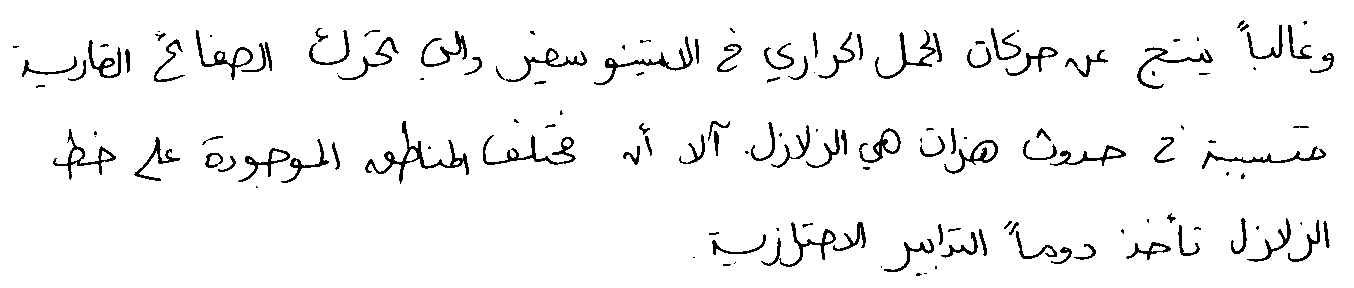 وغالباً ينتج عن حركات الحمل الحراري في الاستينوسفير والتي تحرك الصفائح القارية
متسببة في حدوث هزات هي الزلازل. آلا أن مختلف المناطق الموجودة على خط
الزلازل تأخذ دوماً التدابير الاحترازية.